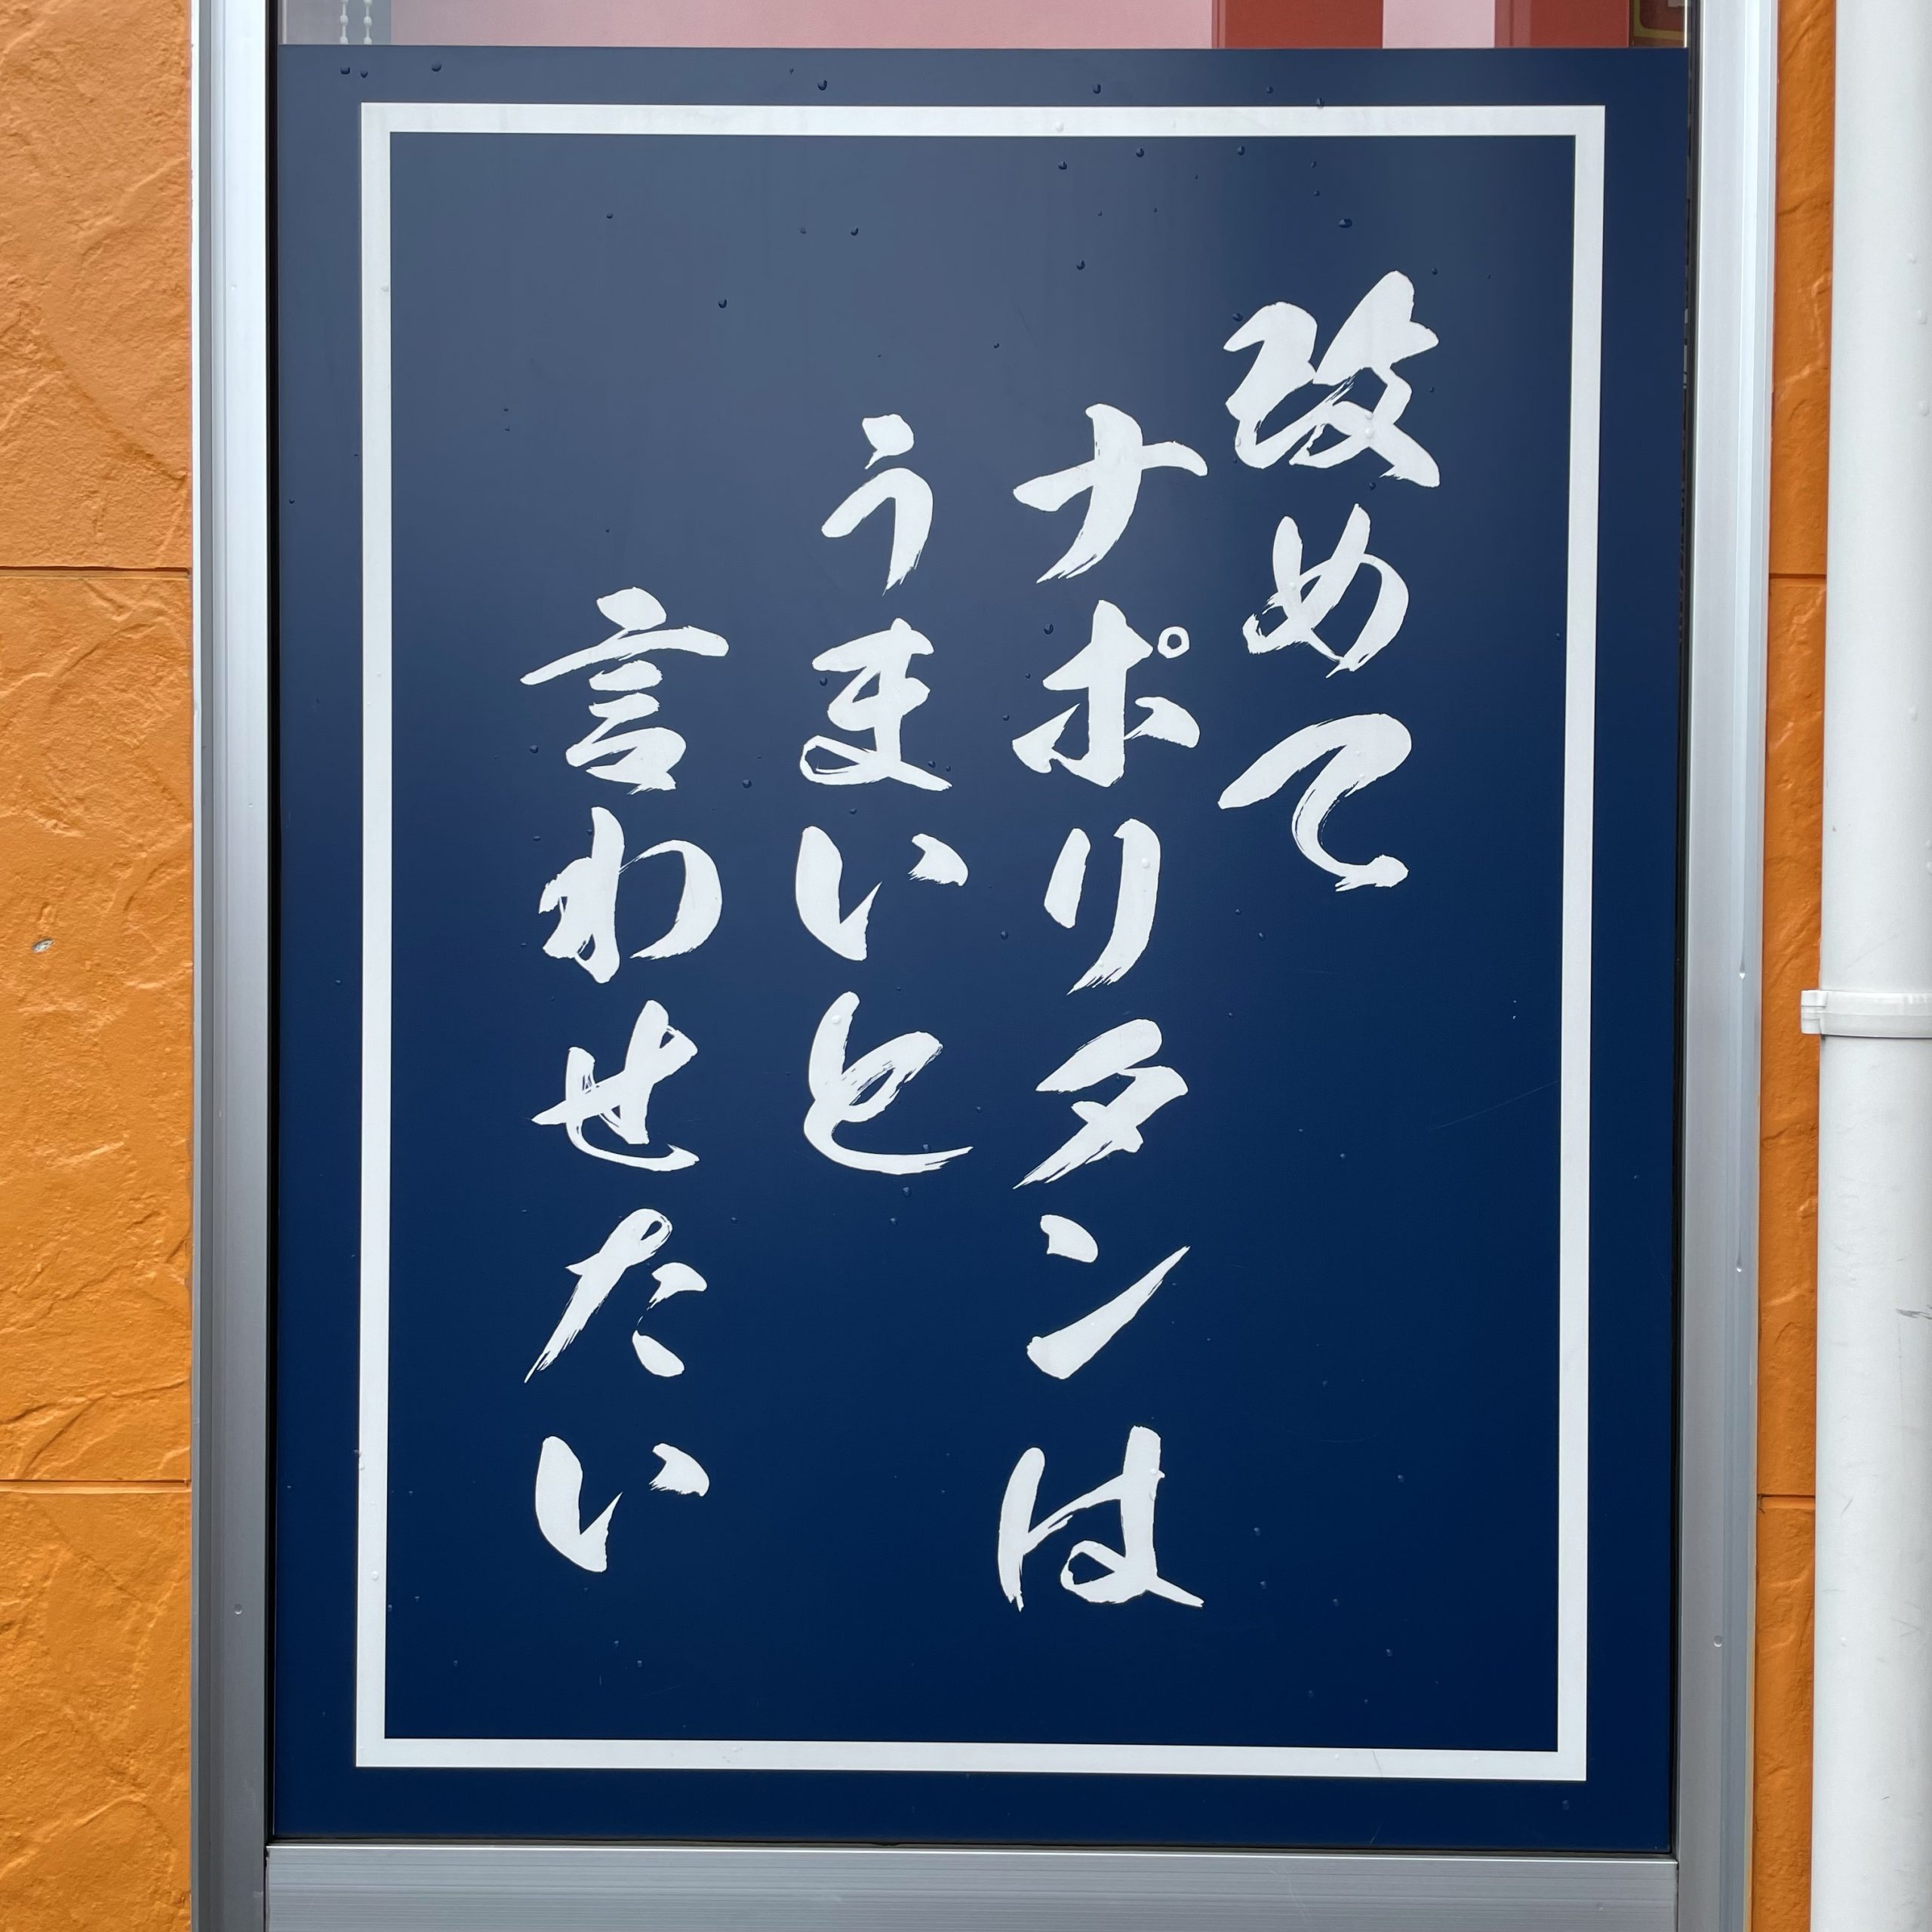 改めて
ナポリタンは
うまいと
言わせたい